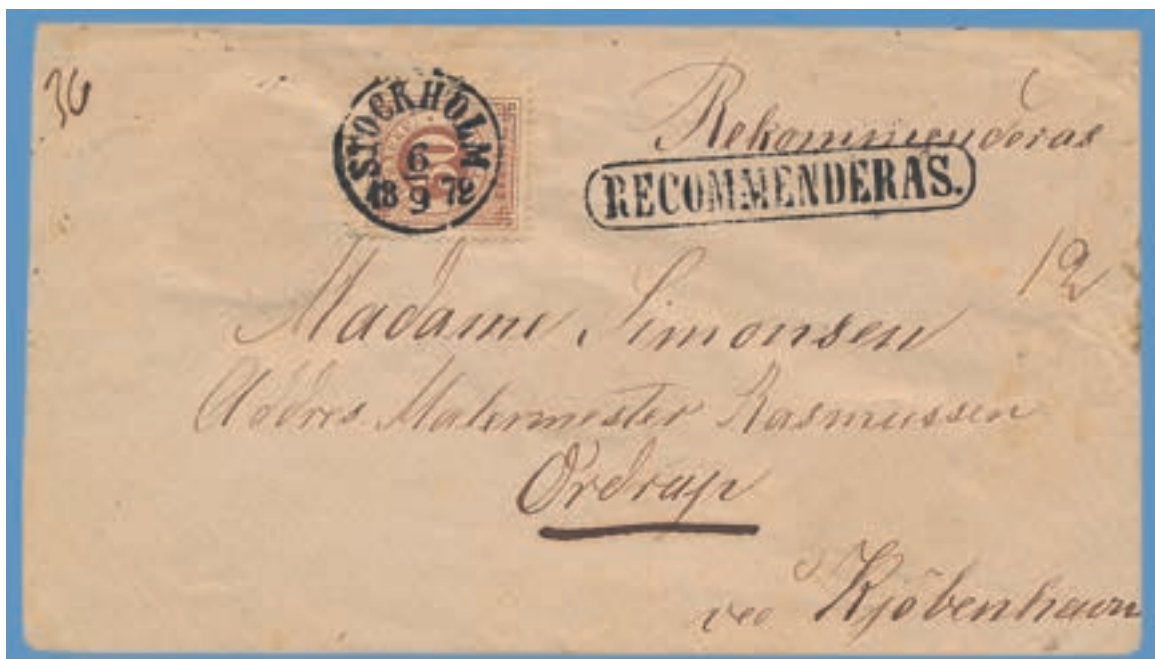 36
STOCKHOLM
6
18 9 72
30
Rekommenderas
RECOMMENDERAS.
12
Madame Simonsen
Addres Malermester Rasmussen
Ordrup
ved Kjøbenhavn